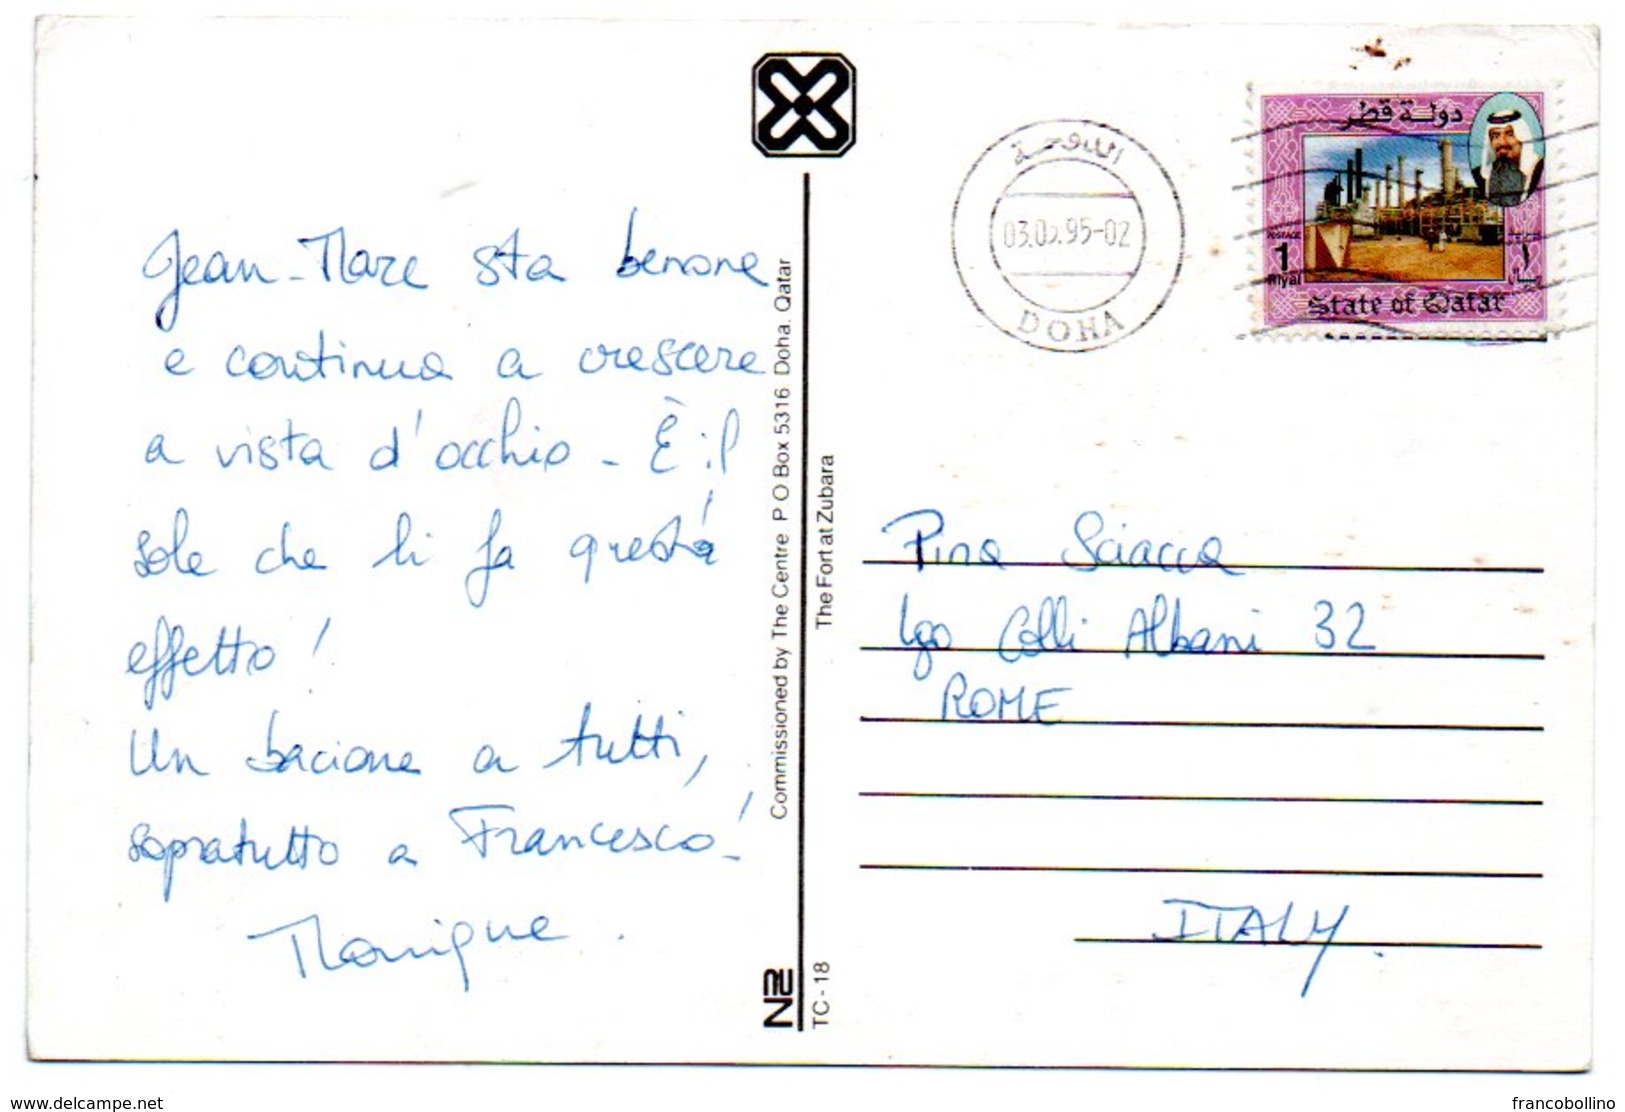 Jean-Marc sta benone
e continua a crescere
a vista d'occhio - È il
sole che li fa questa
effetto!
Un bacione a tutti,
sopratutto a Francesco!
Monique.
Commissioned by The Centre P O Box 5316 Doha. Qatar
The Fort at Zubara
TC-18
الدوحة
95-02
DOHA
دولة قطر
POSTAGE
1
Riyal
١
ريال
State of Qatar
Pina Sciacca
Lgo Colli Albani 32
ROME
ITALY.
www.delcampe.net
francobollino